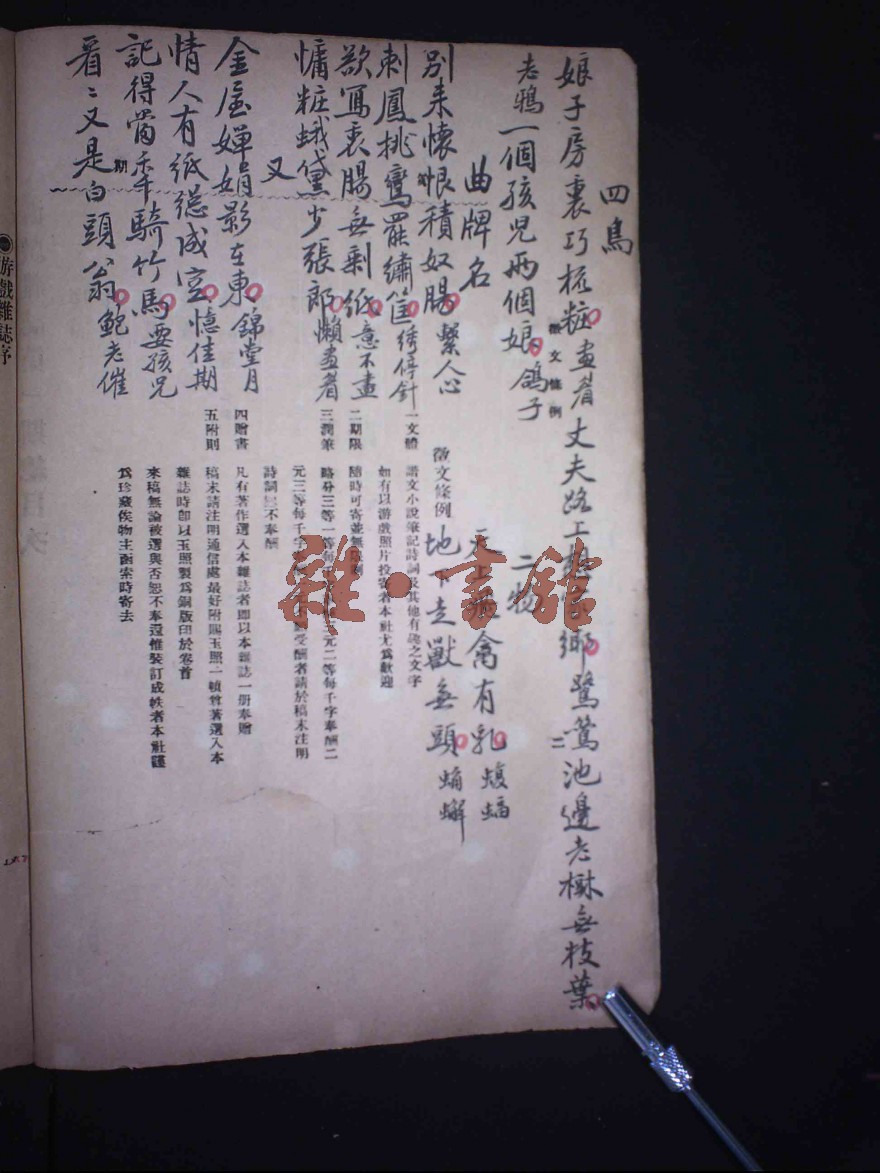 四鳥
娘子房裏巧梳粧 畫眉 丈夫路上想家鄉 鷺鶿 池邊老樹無枝葉
老鴉 一個孩兒兩個娘 鴿子
二物
天上飛禽有乳 蝙蝠
地下走獸無頭 螃蠏
曲牌名
別來懷恨積奴腸 繫人心
刺鳳挑鸞罷繡筐 綉停針
欲寫衷腸無剩紙 意不盡
慵粧蛾黛少張郎 懶畫眉
又
金屋嬋娟影在東 錦堂月
情人有紙總成空 憶佳期
記得當年騎竹馬 耍孩兒
看〻又是白頭翁 鮑老催
徵文條例
徵文條例
一文體 諧文小說筆記詩詞及其他有趣之文字
如有以游戲照片投寄者本社尤為歡迎
二期限 隨時可寄並無限期
三潤筆 略分三等一等每千字奉酬三元二等每千字奉酬二
元三等每千字奉酬一元不願受酬者請於稿末注明
詩詞三不奉酬
四贈書 凡有著作選入本雜誌者即以本雜誌一册奉贈
五附則 稿末請注明通信處最好附賜玉照一幀曾著選入本
雜誌時卽以玉照製為銅版印於卷首
來稿無論被選與否恕不奉還惟裝訂成帙者本社謹
為珍藏俟物主函索時寄去
游戲雜誌序
雜·書館